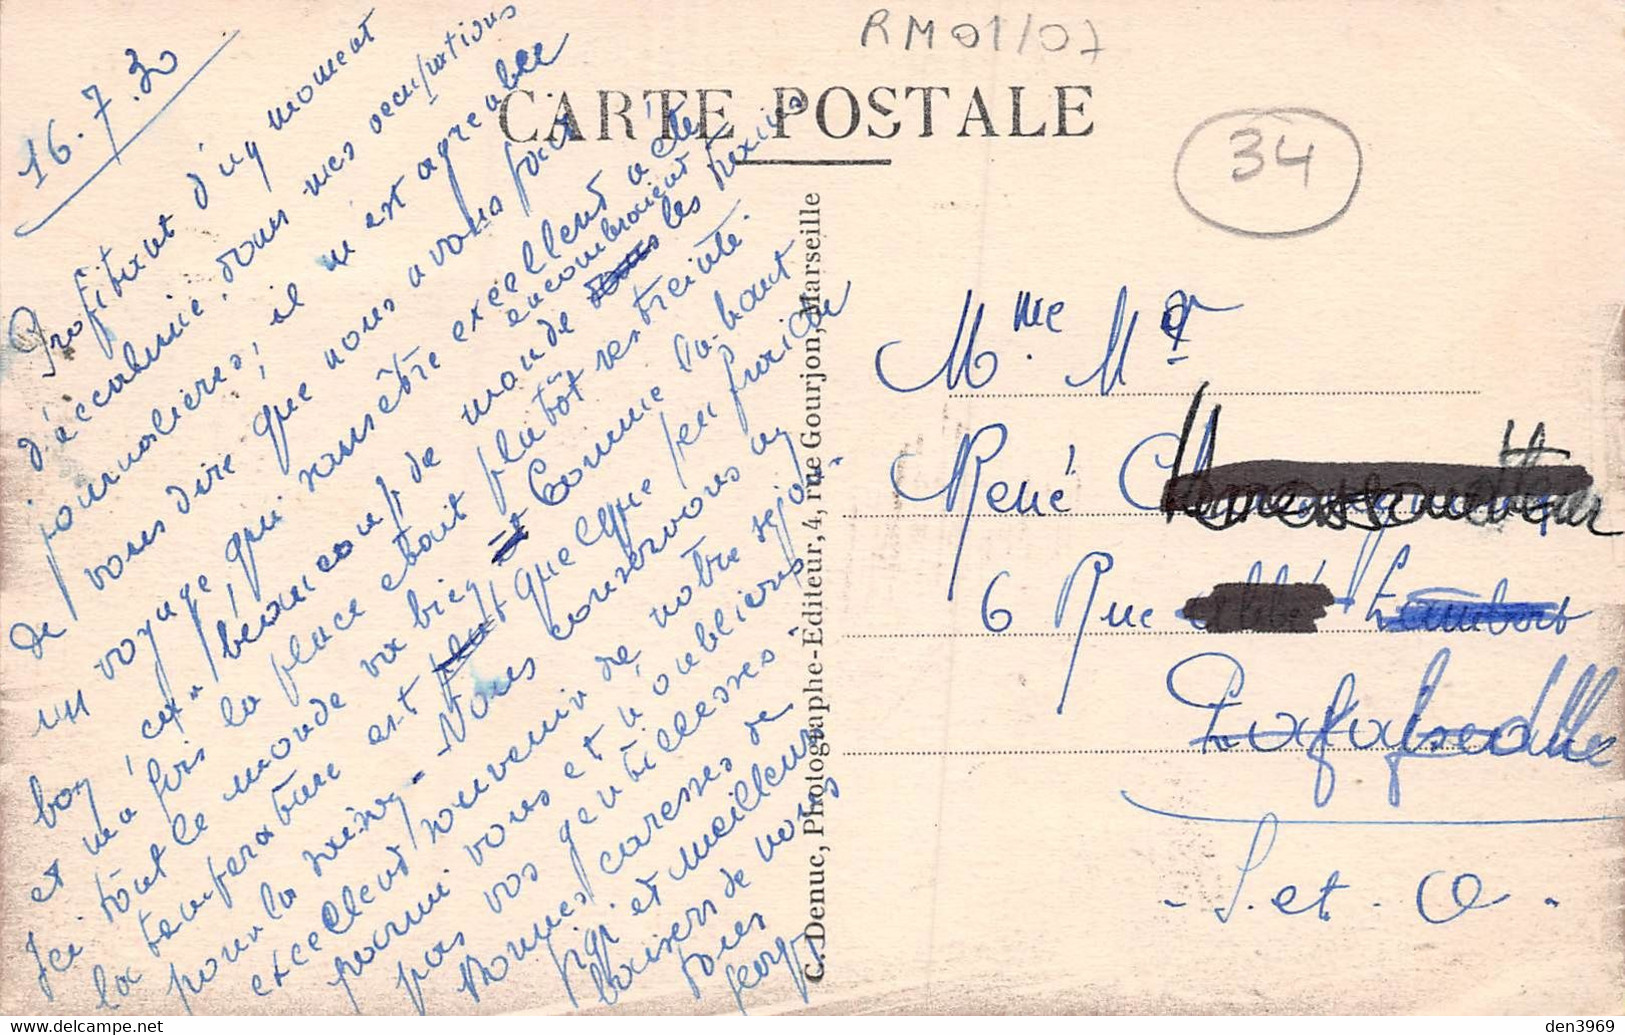 RM01/07
CARTE POSTALE
34
16.7.30
Profitant d'un moment
d'accalmie, dans mes occupations
journalières; il m'est agréable
de vous dire que nous avons fait
un voyage qui sans être excellent a été
bon; beaucoup de monde encombraient les trains
et ma fois la place était plutôt restreinte.
Ici tout le monde va bien. Comme là-haut
la température est quelque peu froide
pour la saison. - Nous conservons un
excellent souvenir de notre séjour
parmi vous et n'oublions
pas vos gentillesses.
Bonnes caresses de
Gigi et meilleurs
baisers de nous
tous
C. Denuc, Photographe-Editeur, 4, rue Gourjon, Marseille
Mme Mr
René
6 Rue
- S. et O. -
den3969